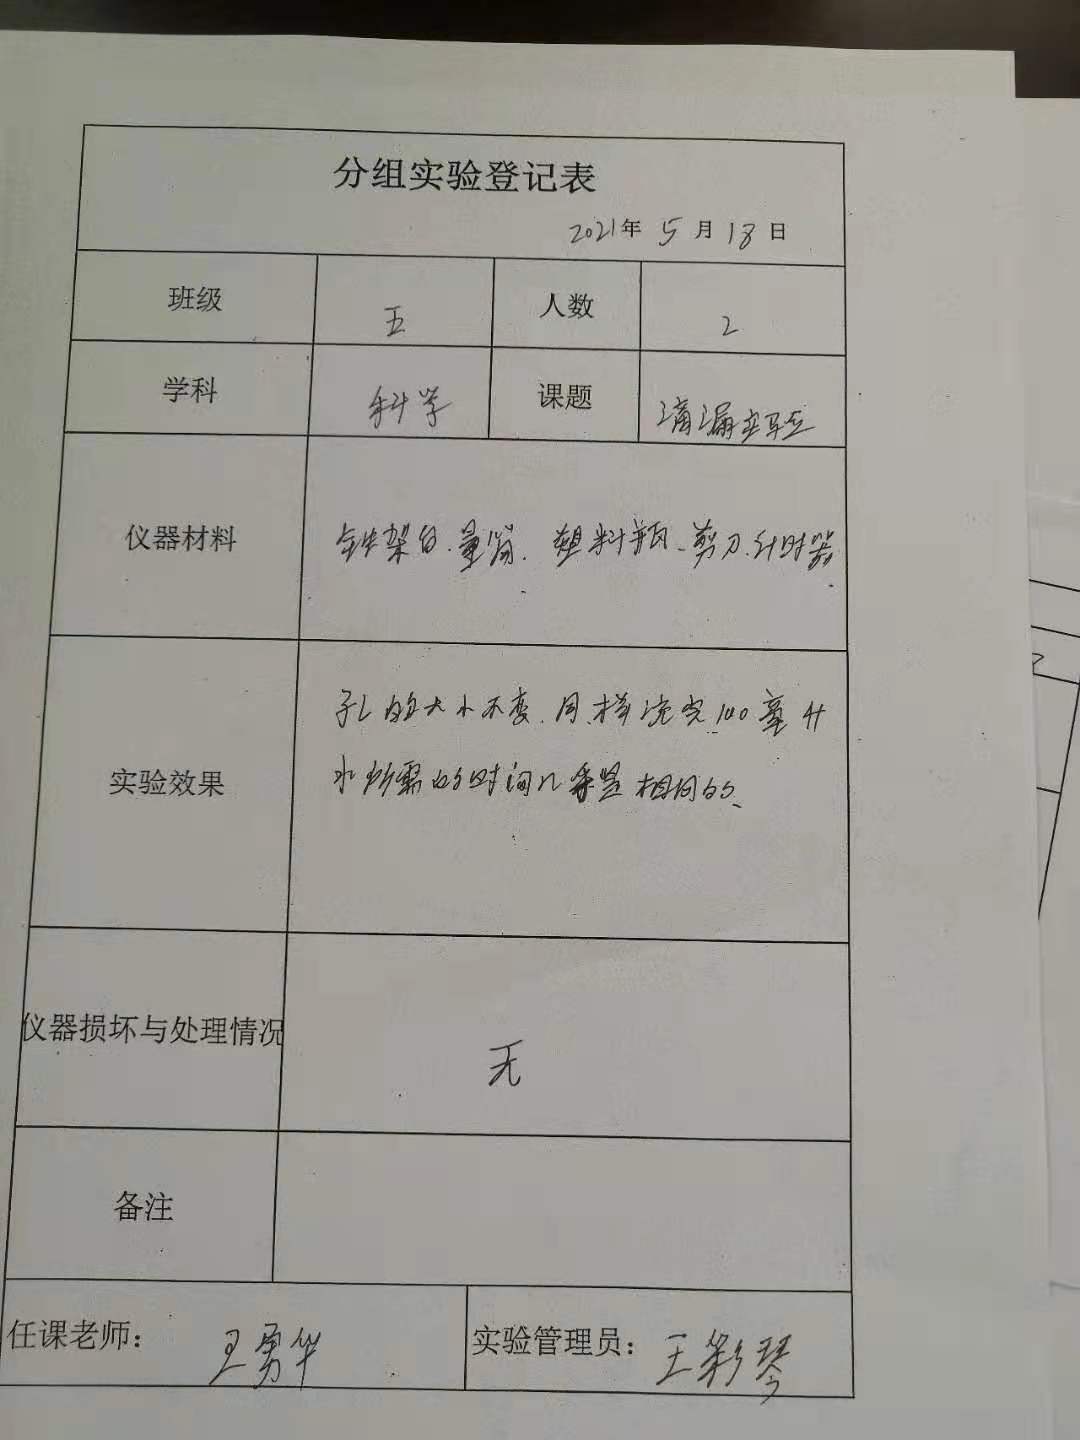 分组实验登记表
2021年 5 月 18 日
班级 五 人数 2
学科 科学 课题 滴漏实验
仪器材料 铁架台、量筒、塑料瓶、剪刀、计时器
孔的大小不变,同样流完100毫升
实验效果 水所需的时间几乎是相同的、
仪器损坏与处理情况 无
备注
任课老师: 王勇华 实验管理员: 王彩琴